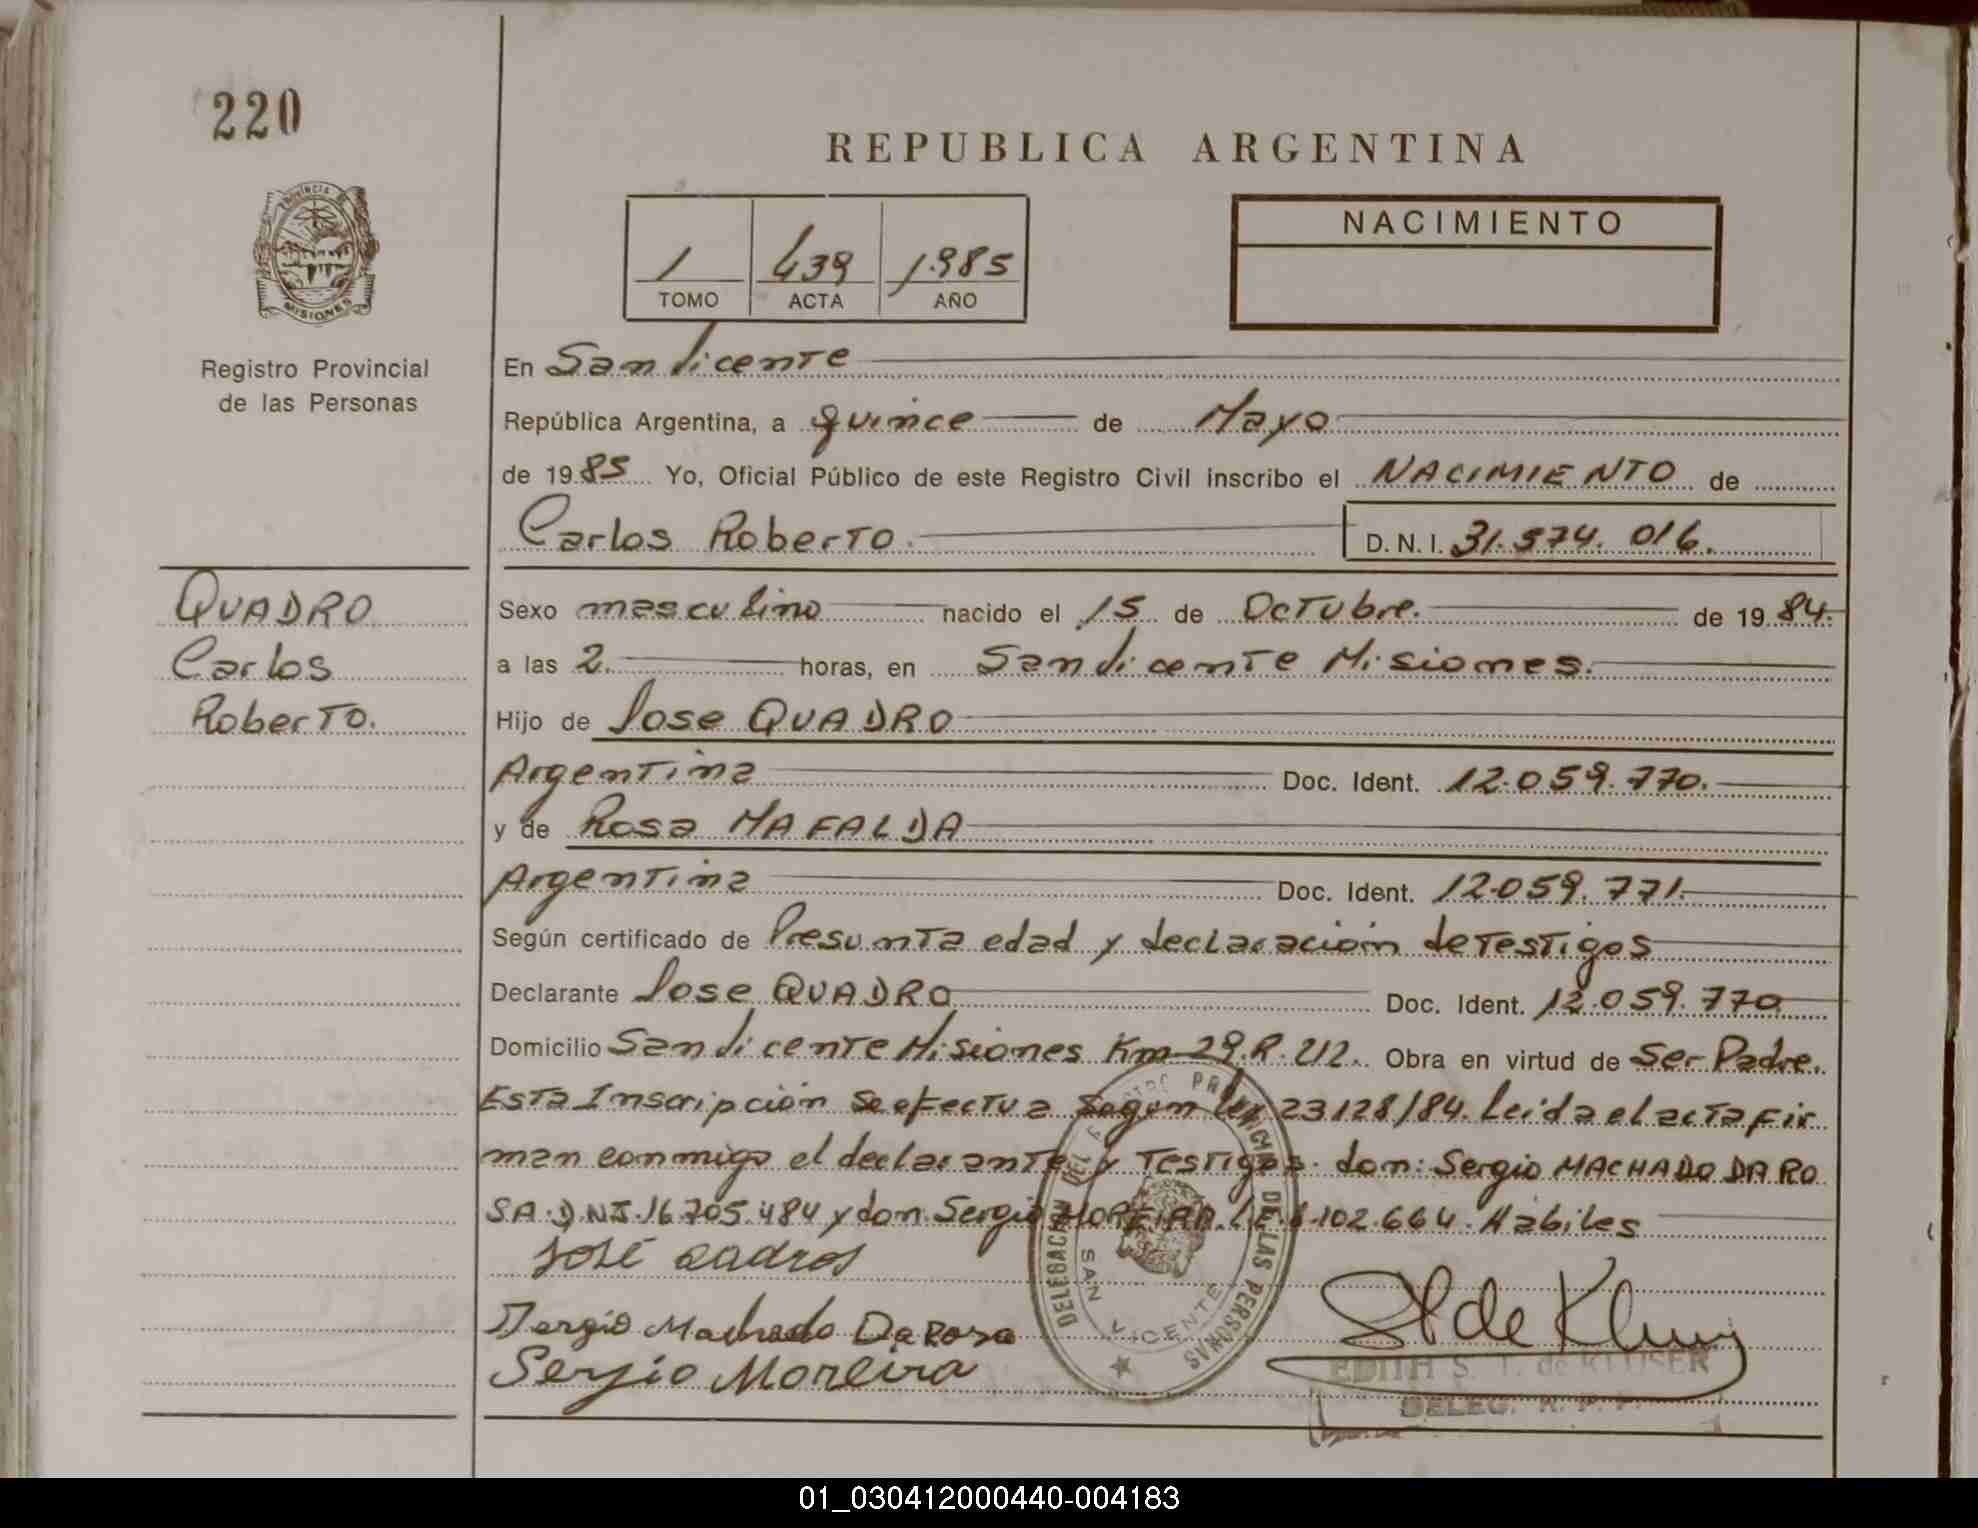 220
REPUBLICA ARGENTINA
PROVINCIA DE MISIONES
1 439 1.985
TOMO ACTA AÑO
NACIMIENTO
Registro Provincial
de las Personas
En San Vicente
República Argentina, a quince de Mayo
de 1985 Yo, Oficial Público de este Registro Civil inscribo el NACIMIENTO de
Carlos Roberto. D. N. I. 31.574.016.
QUADRO
Carlos
Roberto.
Sexo masculino nacido el 15 de Octubre. de 1984.
a las 2. horas, en San Vicente Misiones.
Hijo de Jose QUADRO
Argentina Doc. Ident. 12.059.770.
y de Rosa MAFALDA
Argentina Doc. Ident. 12.059.771.
Según certificado de Presunta edad y declaración de Testigos
Declarante Jose QUADRO Doc. Ident. 12.059.770
Domicilio San Vicente Misiones Km 29.R.212. Obra en virtud de Ser Padre.
Esta Inscripción se efectua segun ley 23128/84. Leida el acta fir
man conmigo el declarante y Testigos. don: Sergio MACHADO DA RO
SA.D.NI.16.705.484 y don Sergio MOREIRA. L.E. 102.664. Habiles
JOSÉ
Sergio Machado Da Rosa
Sergio Moreira
DELEGACION DEL REGISTRO PROVINCIAL DE LAS PERSONAS
SAN VICENTE
EDITH S. T. de KLUSER
DELEG. R. P. P.
01_030412000440-004183